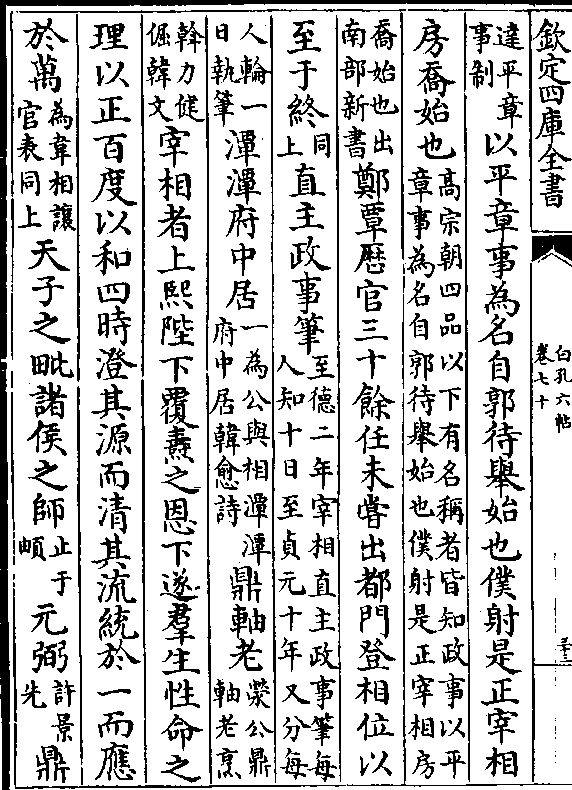 欽定四庫全書
白孔六帖
卷七十
違平章事制以平章事為名自郭待舉始也僕射是正宰相
房喬始也高宗朝四品以下有名稱者皆知政事以平章事為名自郭待舉始也僕射是正宰相房
喬始也出南部新書鄭覃歷官三十餘任未嘗出都門登相位以
至于終同上直主政事筆至德二年宰相直主政事筆每人知十日至貞元十年又分每
人輪一日執筆潭潭府中居一為公與相潭潭府中居韓愈詩鼎軸老滎公鼎軸老烹
斡力健倔韓文宰相者上熙陛下覆燾之恩下遂羣生性命之
理以正百度以和四時澄其源而清其流統於一而應
於萬為韋相讓官表同上天子之毗諸侯之師止于頔元弼許景先鼎